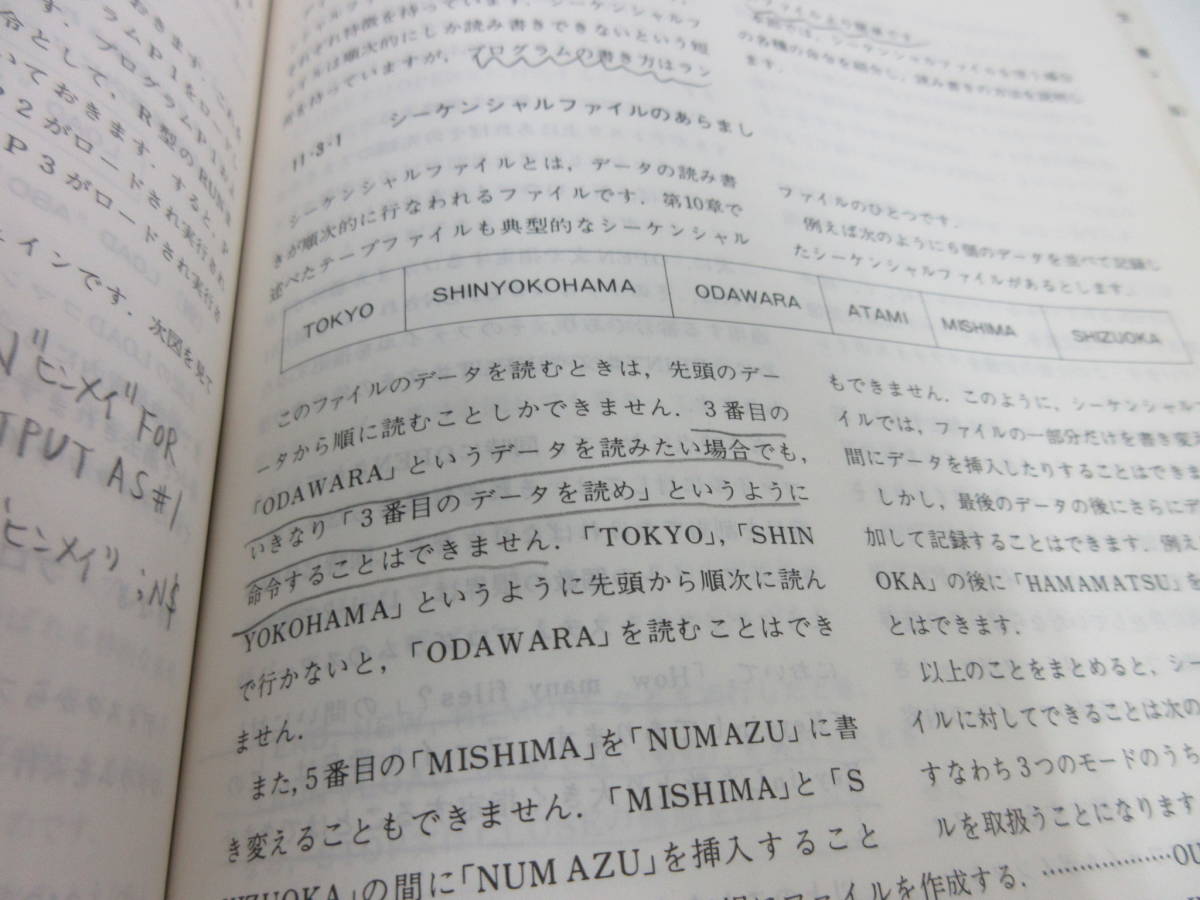 おきます．これは
ラムP1をロードし
プログラムP1およ
令として，R型のRUN命
いておきます．すると，P
P2がロードされ実行され
P3がロードされ実行さ
ェインです．次図を見て
N"ヒンメイ"FOR
TPUT AS#1
"ヒンメイ";N$
ぞれ特徴を持っています．シーケンシャルフ
ァイルは順次的にしか読み書きできないという短
所を持っていますが，プログラムの書き方はラン
ファイルより簡単です．
本節では，シーケンシャルファイルを使う場合
の各種の命令を紹介し，読み書きの方法を説明し
ます．
11・3・1 シーケンシャルファイルのあらまし
シーケンシャルファイルとは，データの読み書
きが順次的に行なわれるファイルです．第10章で
述べたテープファイルも典型的なシーケンシャル
ファイルのひとつです．
例えば次のように6個のデータを並べて記録し
たシーケンシャルファイルがあるとします．
TOKYO SHINYOKOHAMA ODAWARA ATAMI MISHIMA SHIZUOKA
このファイルのデータを読むときは，先頭のデー
ータから順に読むことしかできません．3番目の
「ODAWARA」というデータを読みたい場合でも，
いきなり「3番目のデータを読め」というように
命令することはできません．「TOKYO」，「SHIN
YOKOHAMA」というように先頭から順次に読ん
で行かないと，「ODAWARA」を読むことはでき
ません．
また，5番目の「MISHIMA」を「NUMAZU」に書
き変えることもできません．「MISHIMA」と「S
IZUOKA」の間に「NUMAZU」を挿入すること
もできません．このように，シーケンシャル
イルでは，ファイルの一部分だけを書き変え
間にデータを挿入したりすることはできま
しかし，最後のデータの後にさらにデ
加して記録することはできます．例え
OKA」の後に「HAMAMATSU」を
とはできます．
以上のことをまとめると，シー
イルに対してできることは次の
すなわち3つのモードのうち
ルを取扱うことになります
にファイルを作成する．……………OU